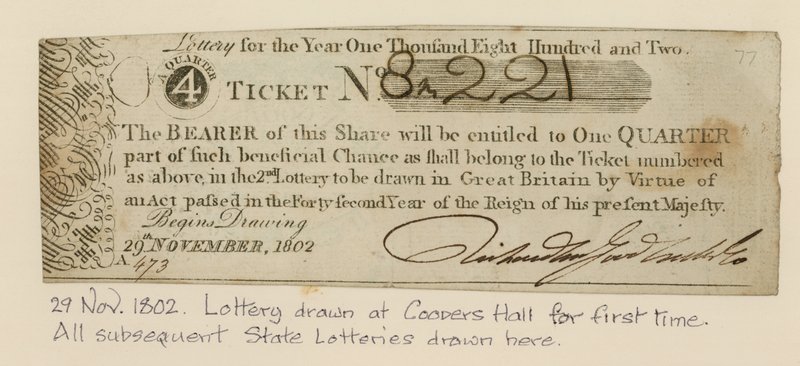 Lottery for the Year One Thouſand Eight Hundred and Two.
77
A QUARTER
4
TICKET No. 8m221
The BEARER of this Share will be entitled to One QUARTER
part of ſuch beneficial Chance as ſhall belong to the Ticket numbered
as above, in the 2nd Lottery to be drawn in Great Britain by Virtue of
an Act paſsed in the Forty ſecond Year of the Reign of his preſent Majeſty.
Begins Drawing
29th NOVEMBER, 1802
A 473
Richardson Goodluck & Co
29 Nov. 1802. Lottery drawn at Coopers Hall for first time.
All subsequent State Lotteries drawn here.